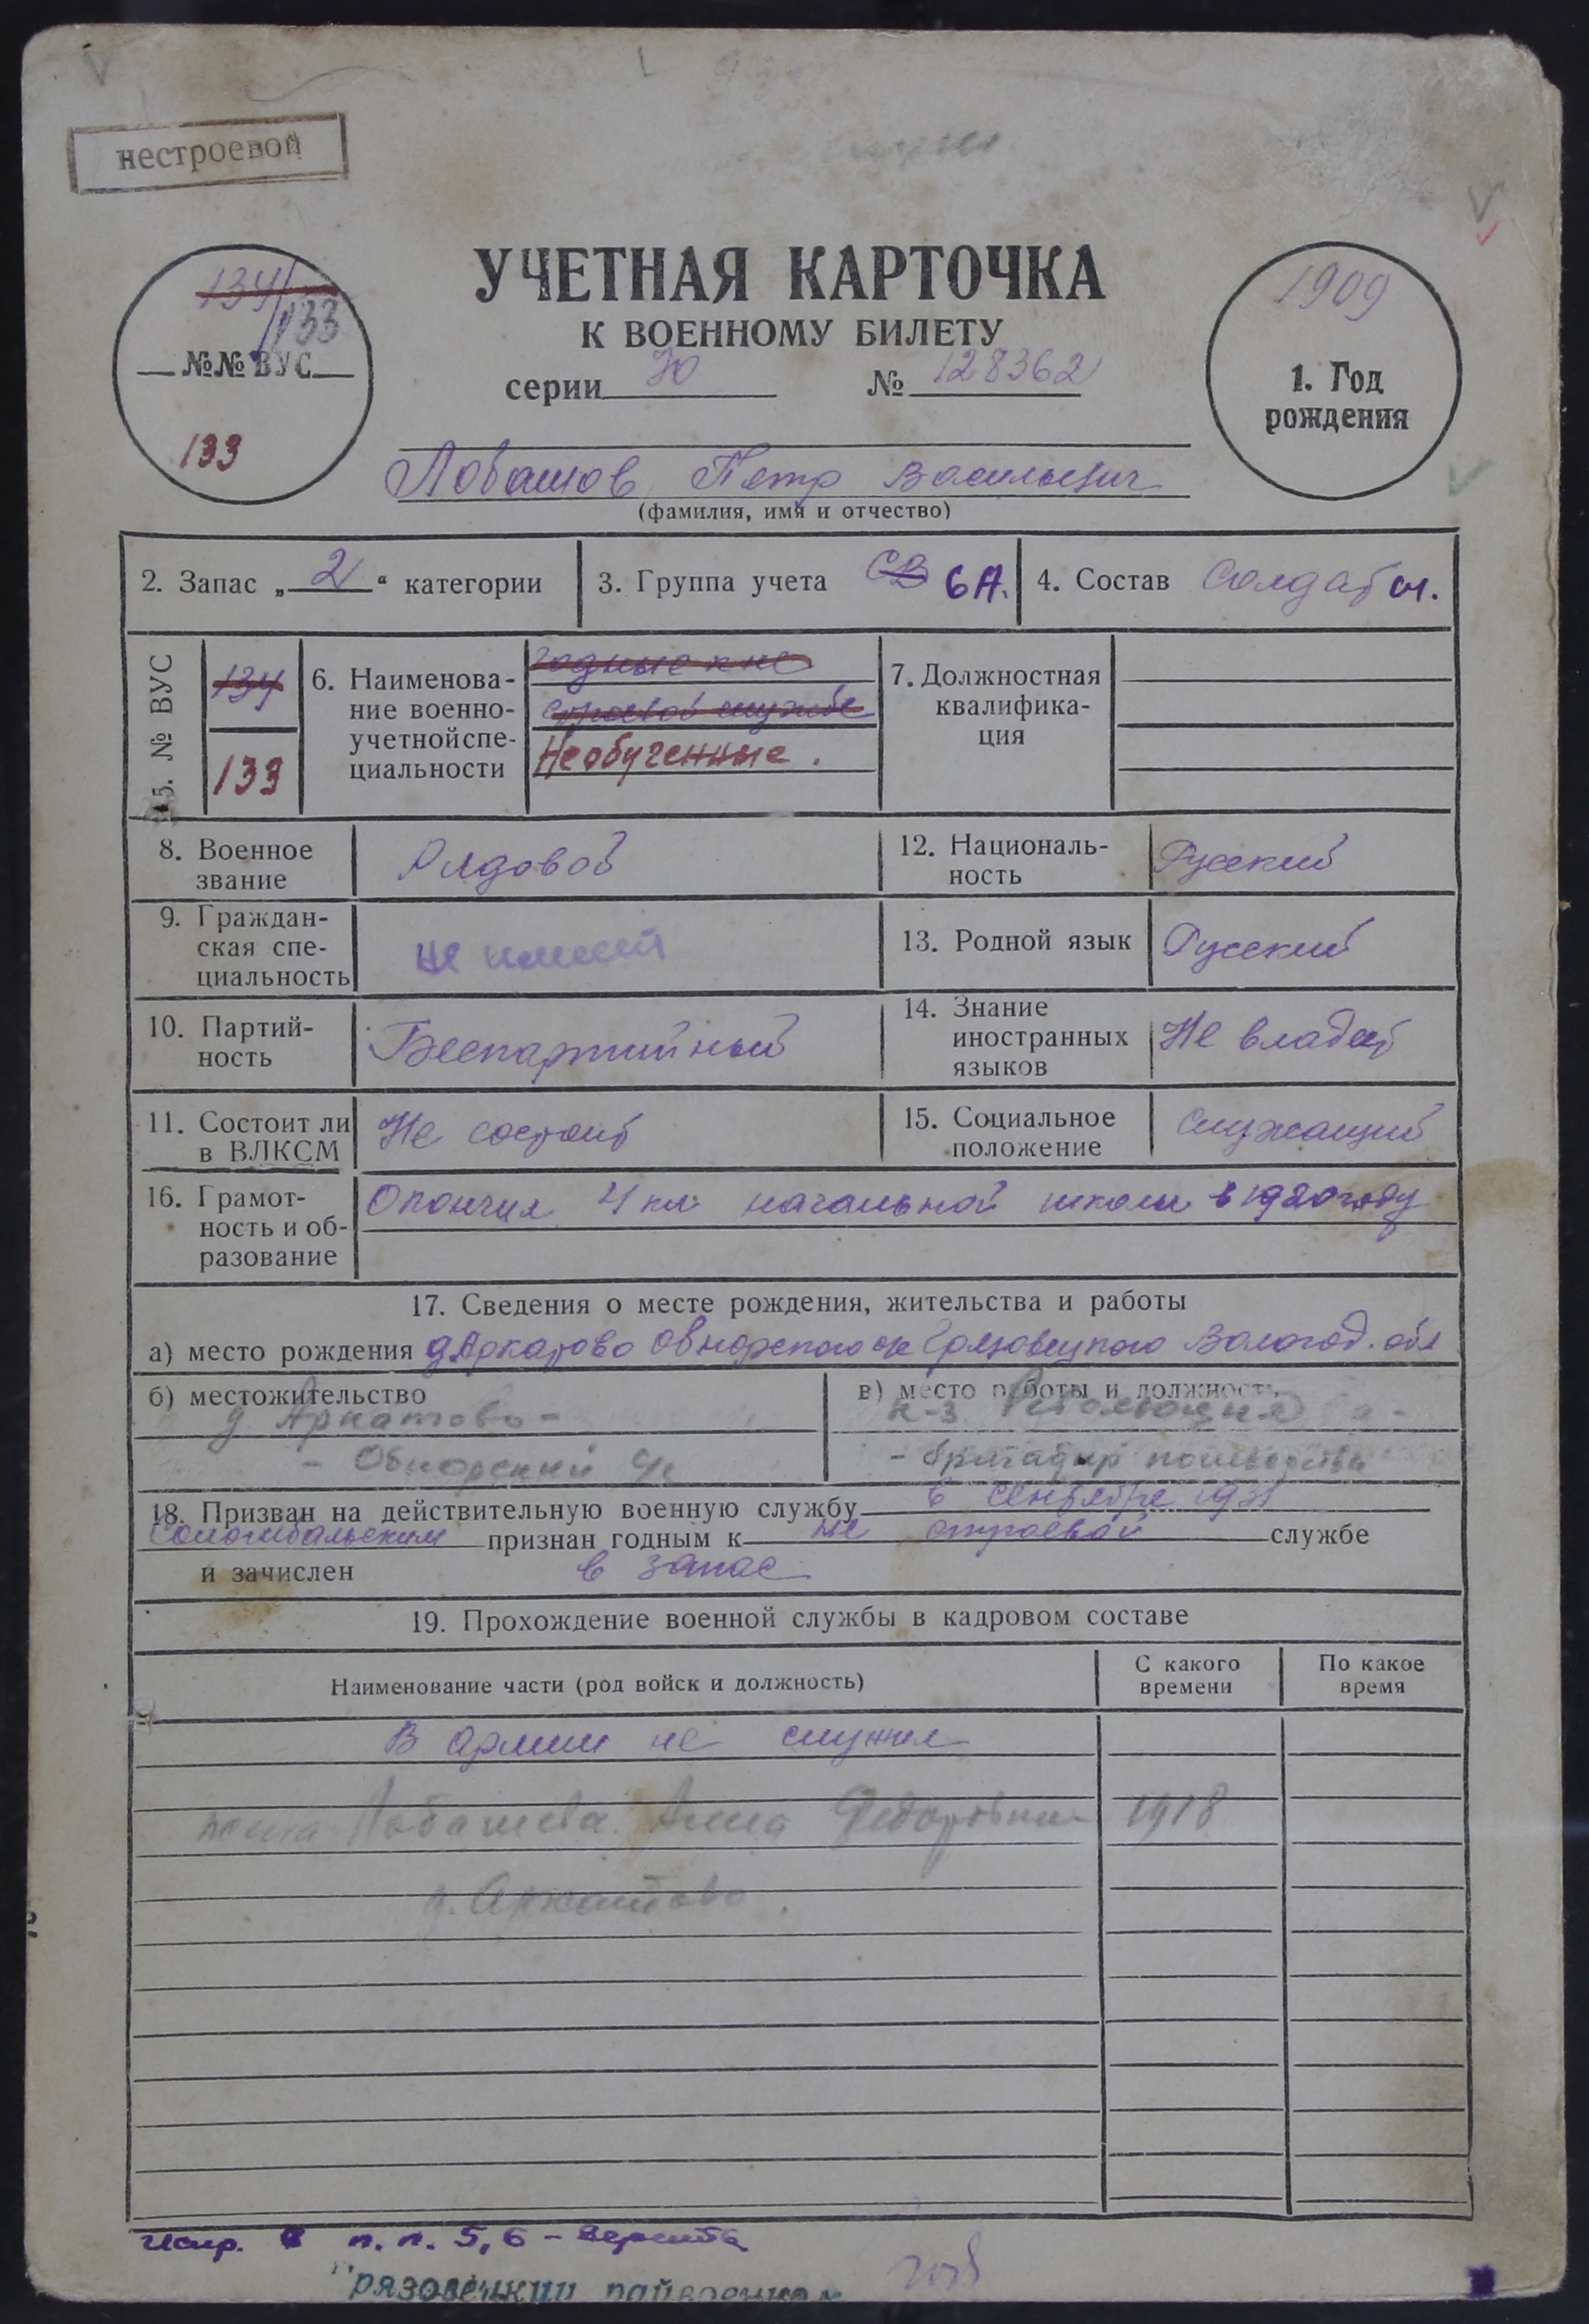 нестроевой
УЧЕТНАЯ КАРТОЧКА
К ВОЕННОМУ БИЛЕТУ
серии Ю № 128362
134/133
№№ ВУС
133
1909
1. Год
рождения
Лобашов Петр Васильевич
(фамилия, имя и отчество)
2. Запас „2“ категории
3. Группа учета СВ 6А.
4. Состав Солдат
5. № ВУС
134
133
6. Наименова-
ние военно-
учетной спе-
циальности
годные к не
строевой службе
Необученные.
7. Должностная
квалифика-
ция
8. Военное
звание
Рядовой
12. Националь-
ность
Русский
9. Граждан-
ская спе-
циальность
не имеет
13. Родной язык
Русский
10. Партий-
ность
Беспартийный
14. Знание
иностранных
языков
Не владеет
11. Состоит ли
в ВЛКСМ
Не состоит
15. Социальное
положение
служащий
16. Грамот-
ность и об-
разование
Окончил 4 кл. начальной школы в 1920 году
17. Сведения о месте рождения, жительства и работы
а) место рождения д. Аркатово Обнорского с/с Грязовецкого Вологод. обл
б) местожительство
д. Аркатово -
- Обнорский с/с
в) место работы и должность
к-з Революция
- бригадир полеводства
18. Призван на действительную военную службу 6 сентября 1931
Соломбальским признан годным к не строевой службе
и зачислен в запас
19. Прохождение военной службы в кадровом составе
Наименование части (род войск и должность)
С какого
времени
По какое
время
В армии не служил
жена Лобашева Анна Федоровна 1918
д. Аркатово.
Испр. в п.п. 5, 6 - верить
Грязовецкий райвоенком